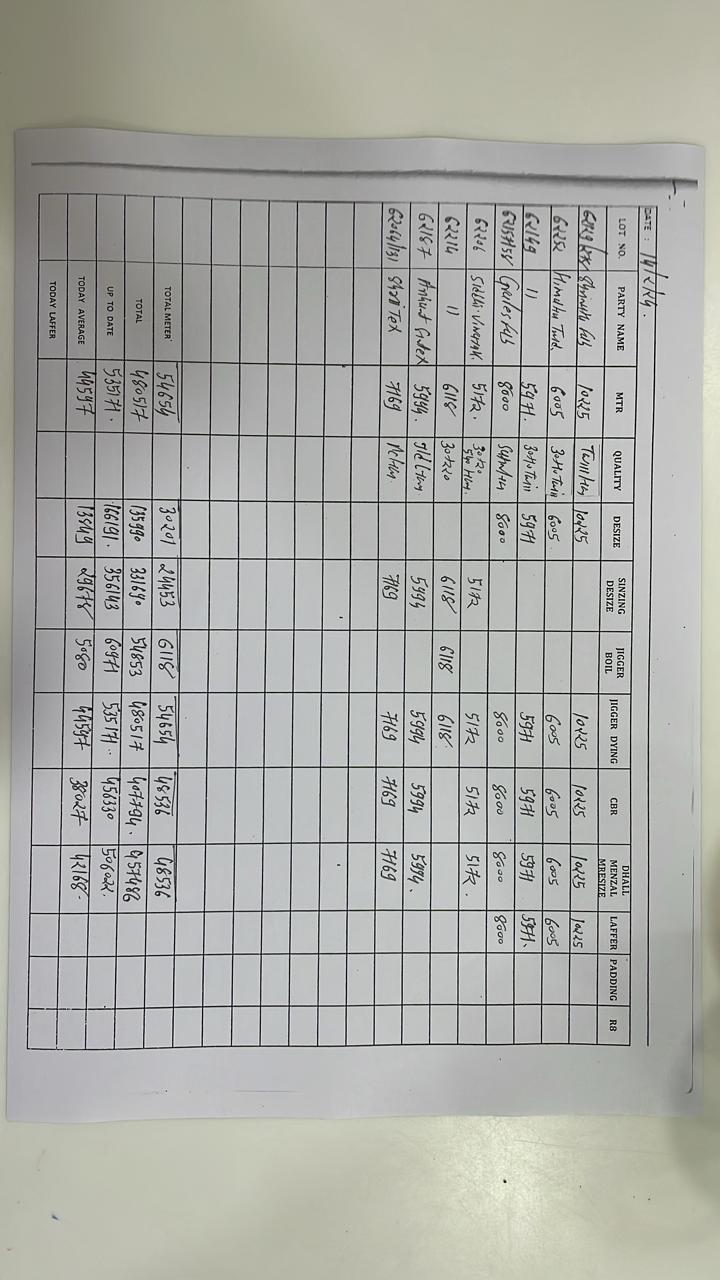 DATE : 14/2/24.
LOT NO. PARTY NAME MTR QUALITY DESIZE SINZING DESIZE JIGGER BOIL JIGGER DYING CBR DHALL MENZAL MRESIZE LAFFER PADDING R8
10225 10225 10225 10225 10225 10225
62252 6005 3040 Twill 6005 6005 6005 6005 6005
62149 11 5971. 3040 Twill 5971 5971 5971 5971 5971.
8000 8000 8000 8000 8000 8000
62206 Siddhi. 5172. 3020 5172 5172 5172 5172.
62214 11 6118 30x20 6118 6118 6118
62187 5994. 5994 5994 5994 5994.
62064/131 Shori Tex 7169 7169 7169 7169 7169
TOTAL METER 54654 30201 24453 6118 54654 48536 48536
TOTAL 480517 135990 331690 54853 480517 407794. 457486
UP TO DATE 535171. 166191. 356143 60971 535171. 456330 506022.
TODAY AVERAGE 44597 13849 29678 5080 44597 38027 42168.
TODAY LAFFER